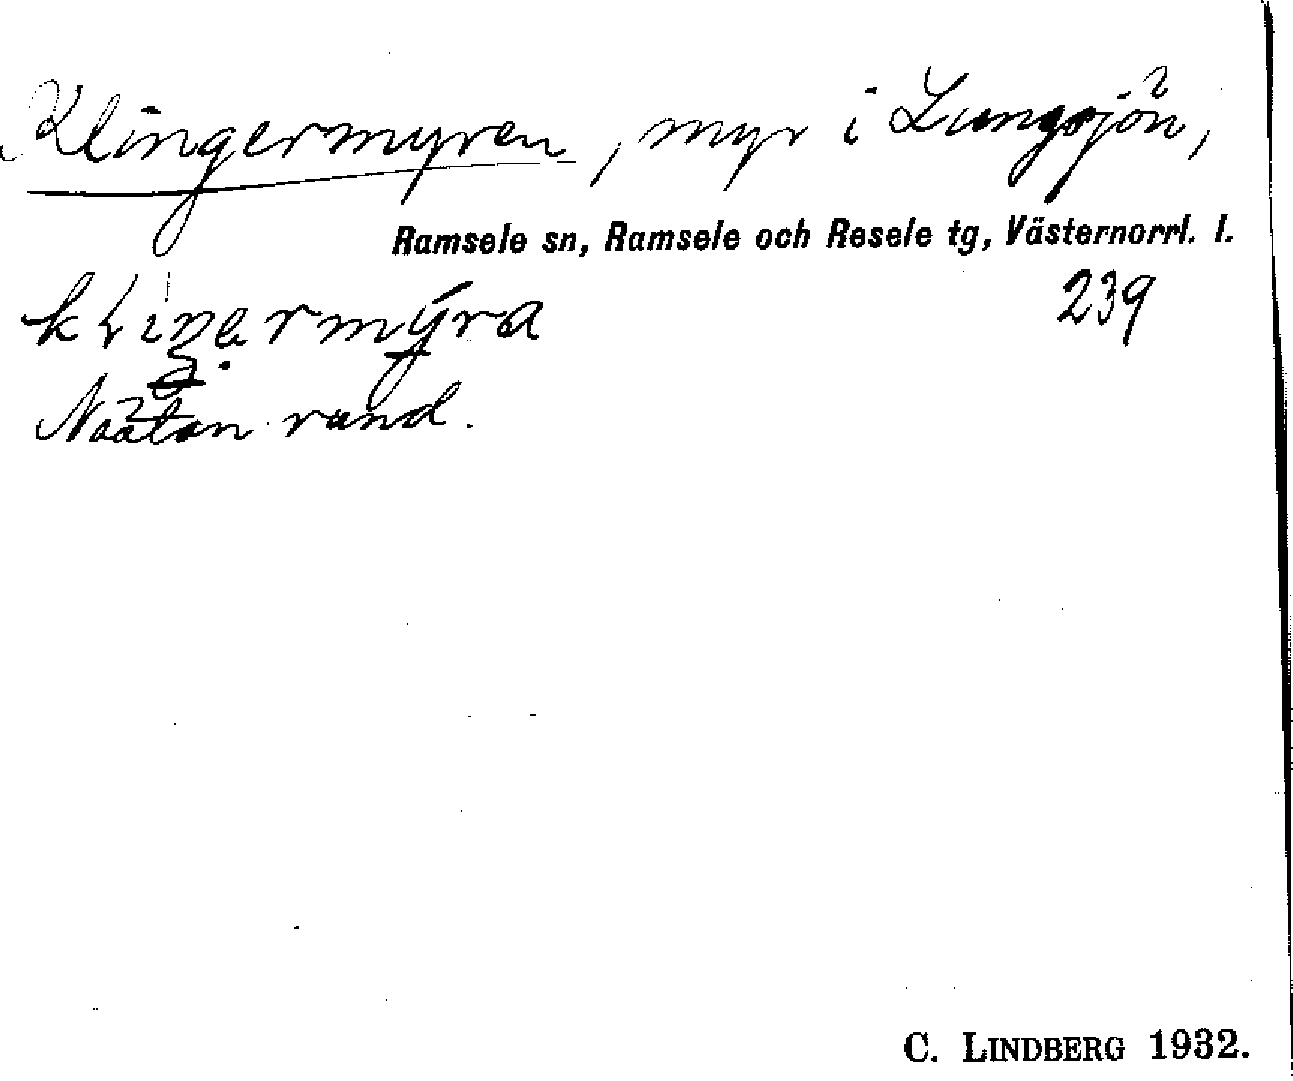 Klingermyren, myr i Lungsjön,
Ramsele sn, Ramsele och Resele tg, Västernorrl. l.
239
rand.
C. LINDBERG 1932.